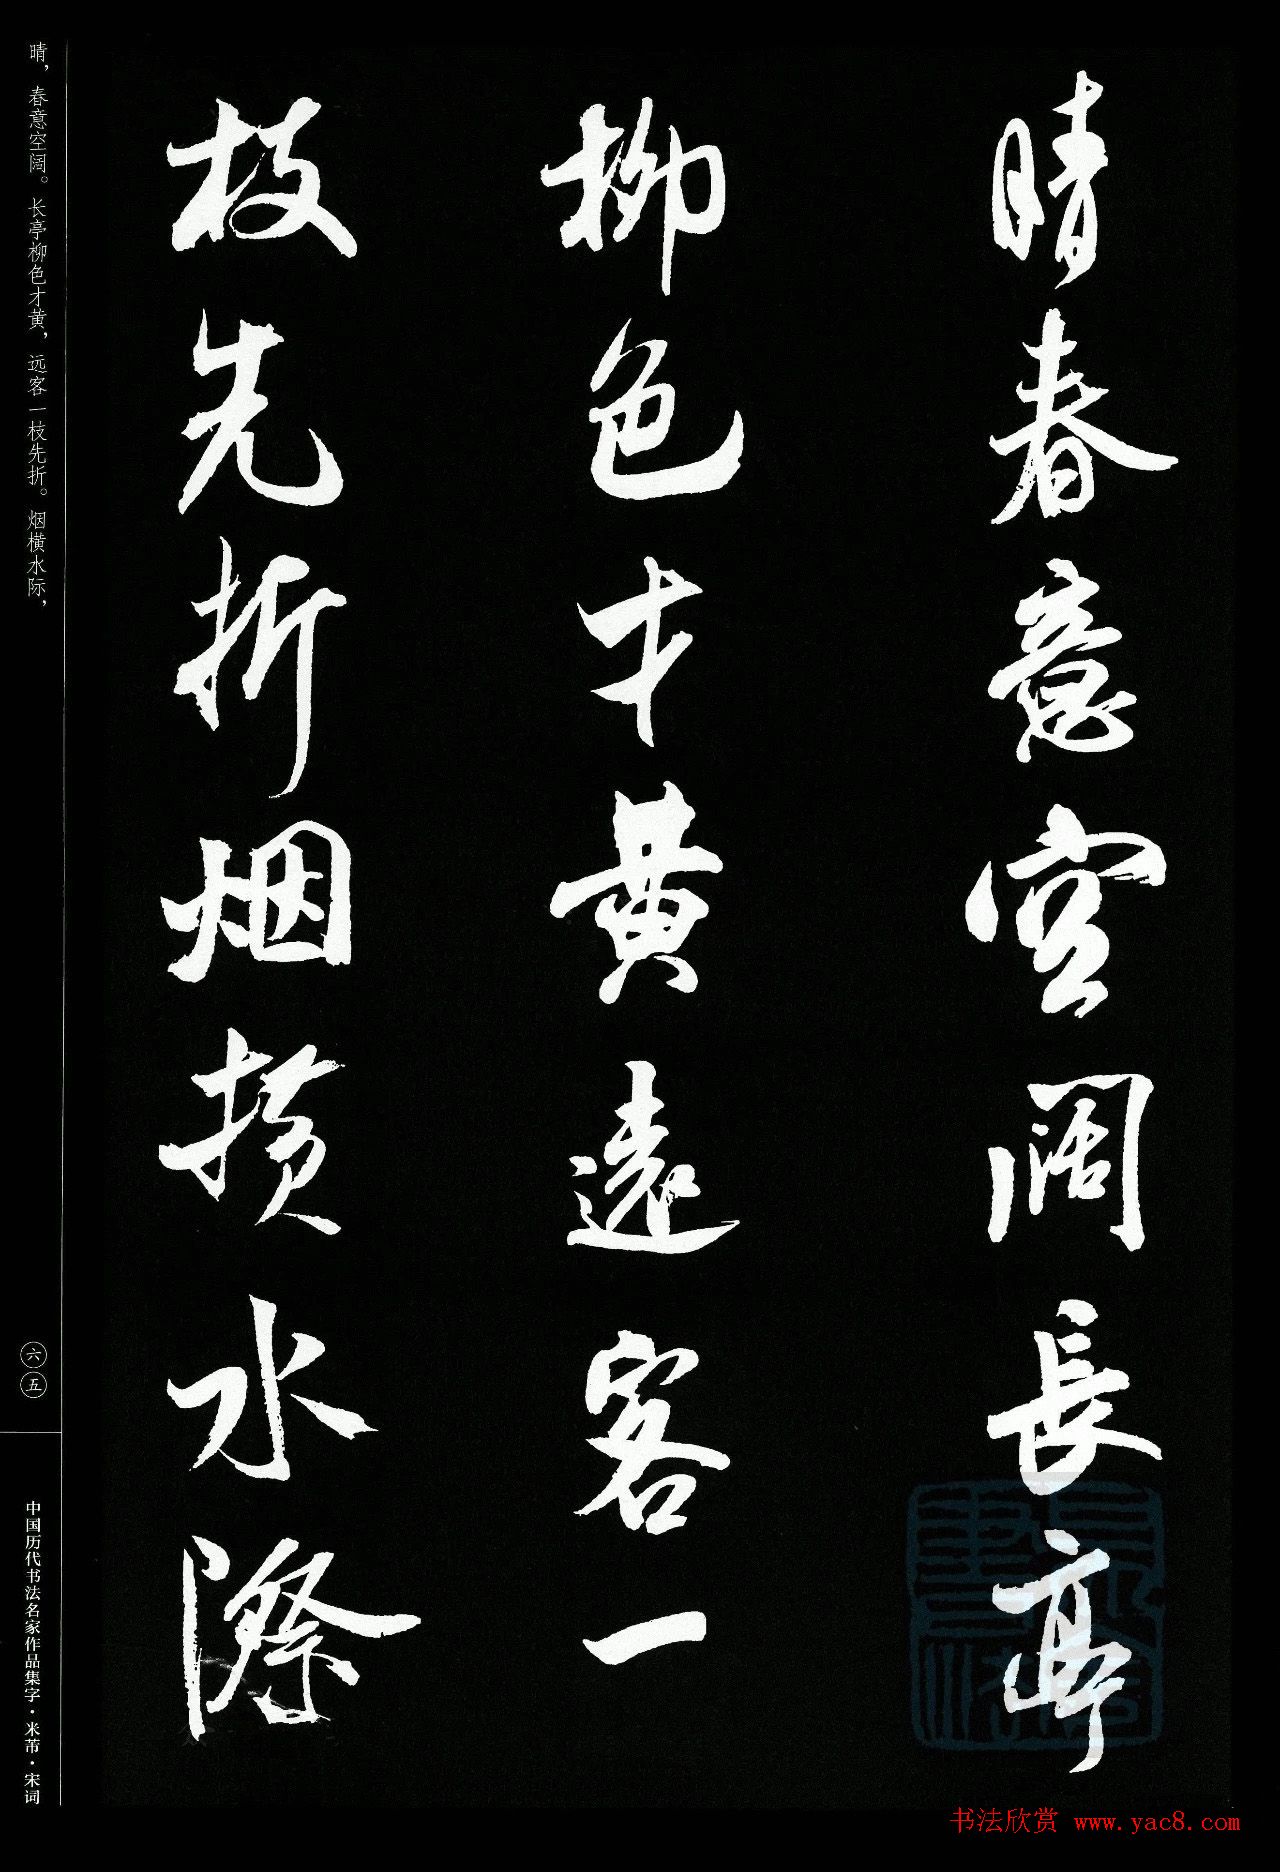 晴春意空阔長亭
柳色才黄遠客一
枝先折烟横水際
晴，春意空阔。长亭柳色才黄，远客一枝先折。烟横水际，
六五
中国历代书法名家作品集字·米芾·宋词
书法欣赏 www.yac8.com